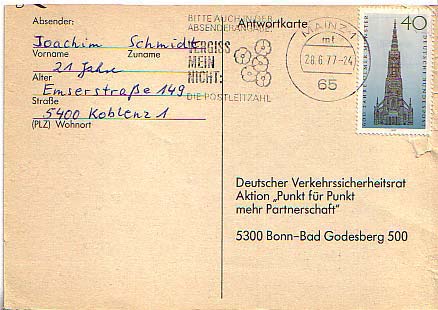 Absender:
Joachim Schmidt
Vorname Zuname
21 Jahre
Alter
Emserstraße 149
Straße
5400 Koblenz 1
(PLZ) Wohnort
BITTE AUCH IN DER
ABSENDERANGABE
VERGISS
MEIN
NICHT:
DIE POSTLEITZAHL
Antwortkarte
MAINZ 1
mt
28.6.77-24
65
40
600 JAHRE ULMER MÜNSTER
DEUTSCHE BUNDESPOST
Deutscher Verkehrssicherheitsrat
Aktion „Punkt für Punkt
mehr Partnerschaft"
5300 Bonn–Bad Godesberg 500